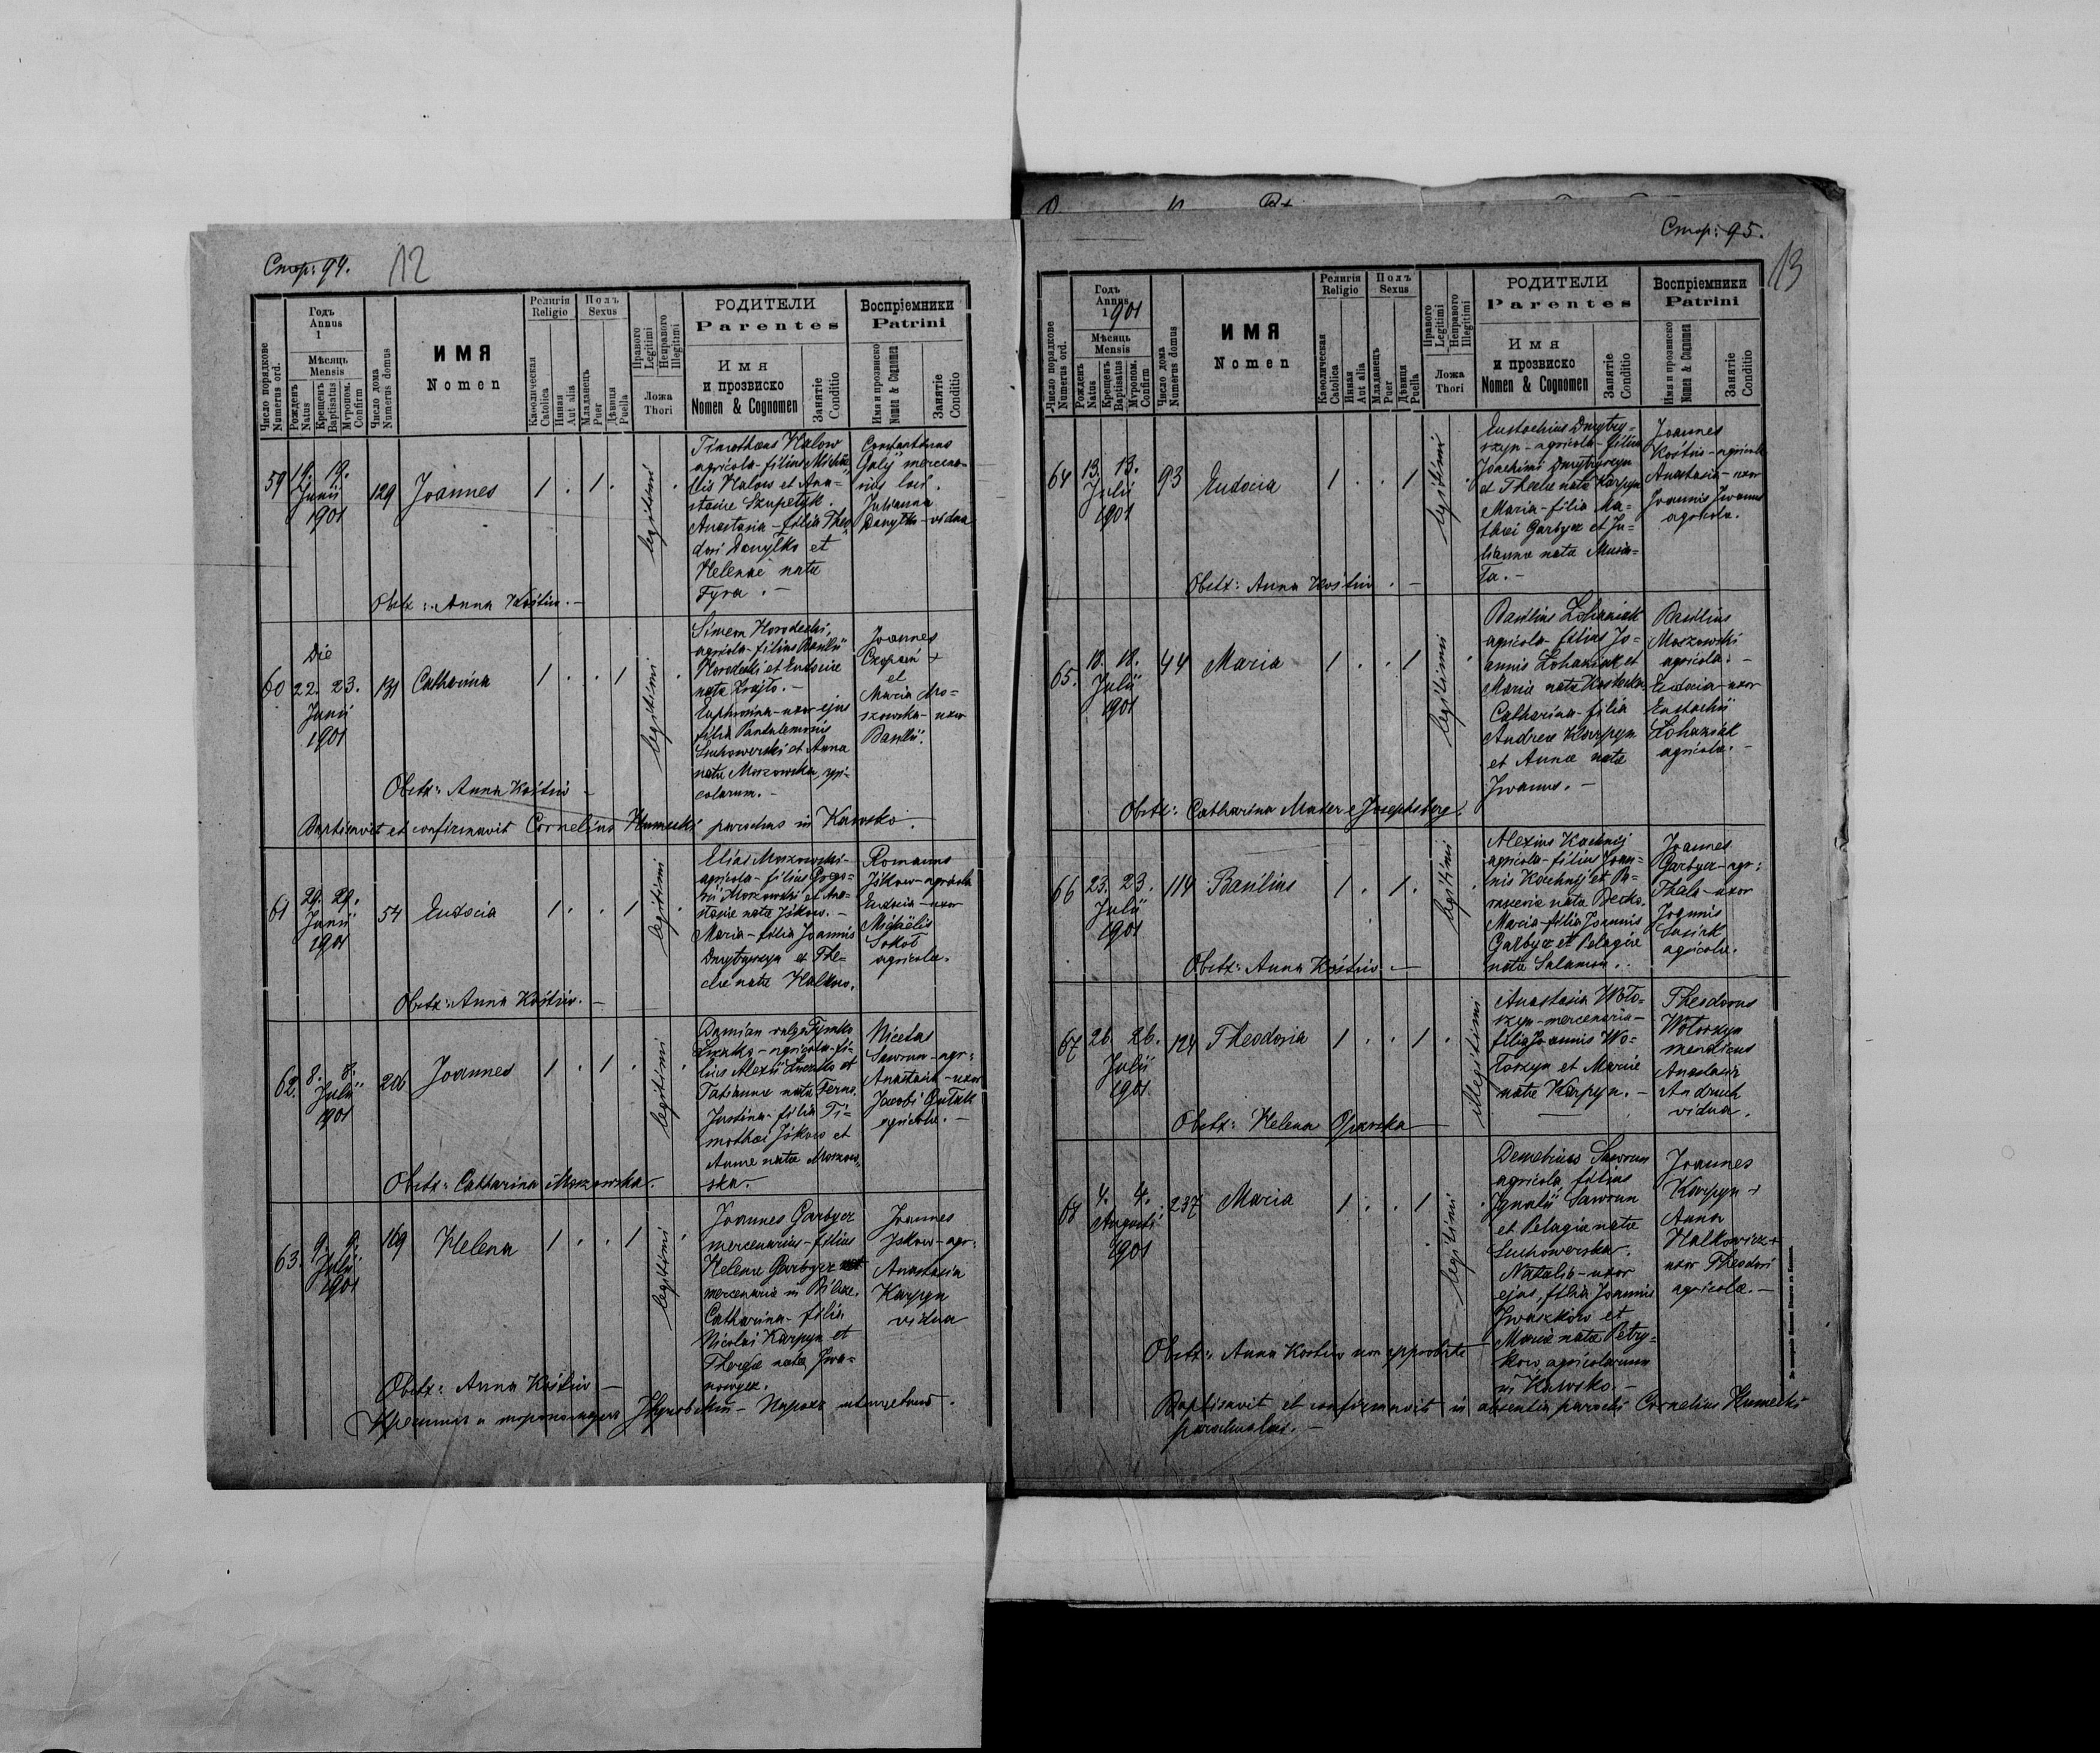 Стор: 94.
12
Число порядкове
Numerus ord.
Годъ
Annus
1
Мѣсяць
Mensis
Рожденъ
Natus
Крещенъ
Baptisatus
Муропом.
Confirm
Число дома
Numerus domus
ИМЯ
Nomen
Религія
Religio
Каѳолическая
Catolica
Инная
Aut alia
Полъ
Sexus
Младанецъ
Puer
Дѣвиця
Puella
Правого
Legitimi
Неправого
Illegitimi
Ложа
Thori
РОДИТЕЛИ
Parentes
Имя
и прозвиско
Nomen & Cognomen
Занятіе
Conditio
Воспріемники
Patrini
Имя и прозвиско
Nomen & Cognomen
Занятіе
Conditio
59
19. 19.
Junii
1901
129
Joannes
1 . 1 .
legitimi
Timotheus Halow
agricola - filius Michae-
lis Halow et Ana-
stasiae Szupetyk.
Anastasia - filia Theo-
dori Danyłko et
Helenae nata
Fyra. -
Constantinus
Galij mercena-
rius loci.
Julianna
Danyłko - vidua
Obstx: Anna Kostiw. -
60
Die
22. 23.
Junii
1901
131
Catharina
1 . . 1
legitimi
Simeon Horodecki,
agricola - filius Basilii
Horodecki et Eudociae
nata Krajło. -
Euphrosina - uxor ejus
filia Pantalemonis
Suchowerski et Anna
nata Moszowska, agri-
colarum. -
Joannes
et
Maria Mo-
szowska - uxor
Basilii.
Obstx: Anna Kostiw -
Baptisavit et confirmavit Cornelius Kumecki parochus in Kawsko.
61
29. 29.
Junii
1901
54
Eudocia
1 . . 1
legitimi
Elias Moszowski -
agricola - filius Grego-
rii Moszowski et Ana-
stasiae nata Jśkow. -
Maria - filia Joannis
Dmytryszyn et The-
clae nata Halkow.
Romanus
Jśkow - agricola
Eudocia - uxor
Michaëlis
Sokoł
agricolae.
Obstx: Anna Kostiw. -
62.
8. 8.
Julii
1901
206
Joannes
1 . 1 .
legitimi
Damian vulgo Tymko
- agricola - fi-
lius Alexii et
Tatiannae nata
Justina - filia Ti-
mothei Jśkow et
Annae nata Moszow-
ska. -
Nicetas
Sawrun - agr:
Anastasia - uxor
Jacobi
agricolae. -
Obstx: Catharina Moszowska. -
63.
9. 9.
Julii
1901
169
Helena
1 . . 1
legitimi
Joannes Garbycz
mercenarius - filius
Helenae Garbycz
mercenaria in
Catharina - filia
Nicolai Karpyn et
Theclae nata Iwa-
nowycz.
Joannes
Jśkow - agr:
Anastasia
Karpyn
vidua
Obstx: Anna Kostiw -
Стор: 95.
13
Число порядкове
Numerus ord.
Годъ
Annus
1901
Мѣсяць
Mensis
Рожденъ
Natus
Крещенъ
Baptisatus
Муропом.
Confirm
Число дома
Numerus domus
ИМЯ
Nomen
Религія
Religio
Каѳолическая
Catolica
Инная
Aut alia
Полъ
Sexus
Младанецъ
Puer
Дѣвиця
Puella
Правого
Legitimi
Неправого
Illegitimi
Ложа
Thori
РОДИТЕЛИ
Parentes
Имя
и прозвиско
Nomen & Cognomen
Занятіе
Conditio
Воспріемники
Patrini
Имя и прозвиско
Nomen & Cognomen
Занятіе
Conditio
64
13. 13.
Julii
1901
93
Eudocia
1 . . 1
legitimi
Eustachius Dmytry-
szyn - agricola - filius
Joachimi Dmytryszyn
et Theclae nata Karpyn
Maria - filia Ma-
thaei Garbycz et Ju-
lianna nata Musia-
ta. -
Joannes
Kostiw - agricola
Anastasia - uxor
Joannis Iwanus
agricola.
Obstx: Anna Kostiw. -
65.
18. 18.
Julii
1901
44
Maria
1 . . 1
legitimi
Basilius Łohaziak
agricola - filius Jo-
annis Łohaziak et
Mariae nata
Catharina - filia
Andreae Karpyn
et Annae nata
Iwanus. -
Basilius
Moszowski
agricola. -
Eudocia - uxor
Eustachii
Łohaziak
agricola. -
Obstx: Catharina Mader e Josephsberg.
66
23. 23.
Julii
1901
114
Basilius
1 . 1 .
legitimi
Alexius Kachnij
agricola - filius Joan-
nis Kachnij et Pa-
rasceviae nata
Maria - filia Joannis
Garbycz et Pelagiae
nata Salamon. .
Joannes
Garbycz - agr:
Thecla - uxor
Joannis
agricolae.
Obstx: Anna Kostiw. -
67
26. 26.
Julii
1901
124
Theodosia
1 . . 1
illegitimi
Anastasia Woło-
szyn - mercenaria -
filia Joannis Wo-
łoszyn et Mariae
nata Karpyn. -
Theodorus
Wołoszyn
mendicus
Anastasia
Andruch
vidua.
Obstx: Helena Oparska
68
4. 4.
Augusti
1901
237
Maria
1 . . 1
legitimi
Demetrius Sawrun
agricola, filius
Ignatii Sawrun
et Pelagiae nata
Suchowerska.
Natalia - uxor
ejus, filia Joannis
Iwaszkiw et
Mariae nata Petry-
kow, agricolarum
in Kawsko. -
Joannes
Karpyn +
Anna
Halkowicz +
uxor Theodori
agricolae. -
Obstx: Anna Kostiw non approbata -
Baptisavit et confirmavit in absentia parochi Cornelius Kumecki